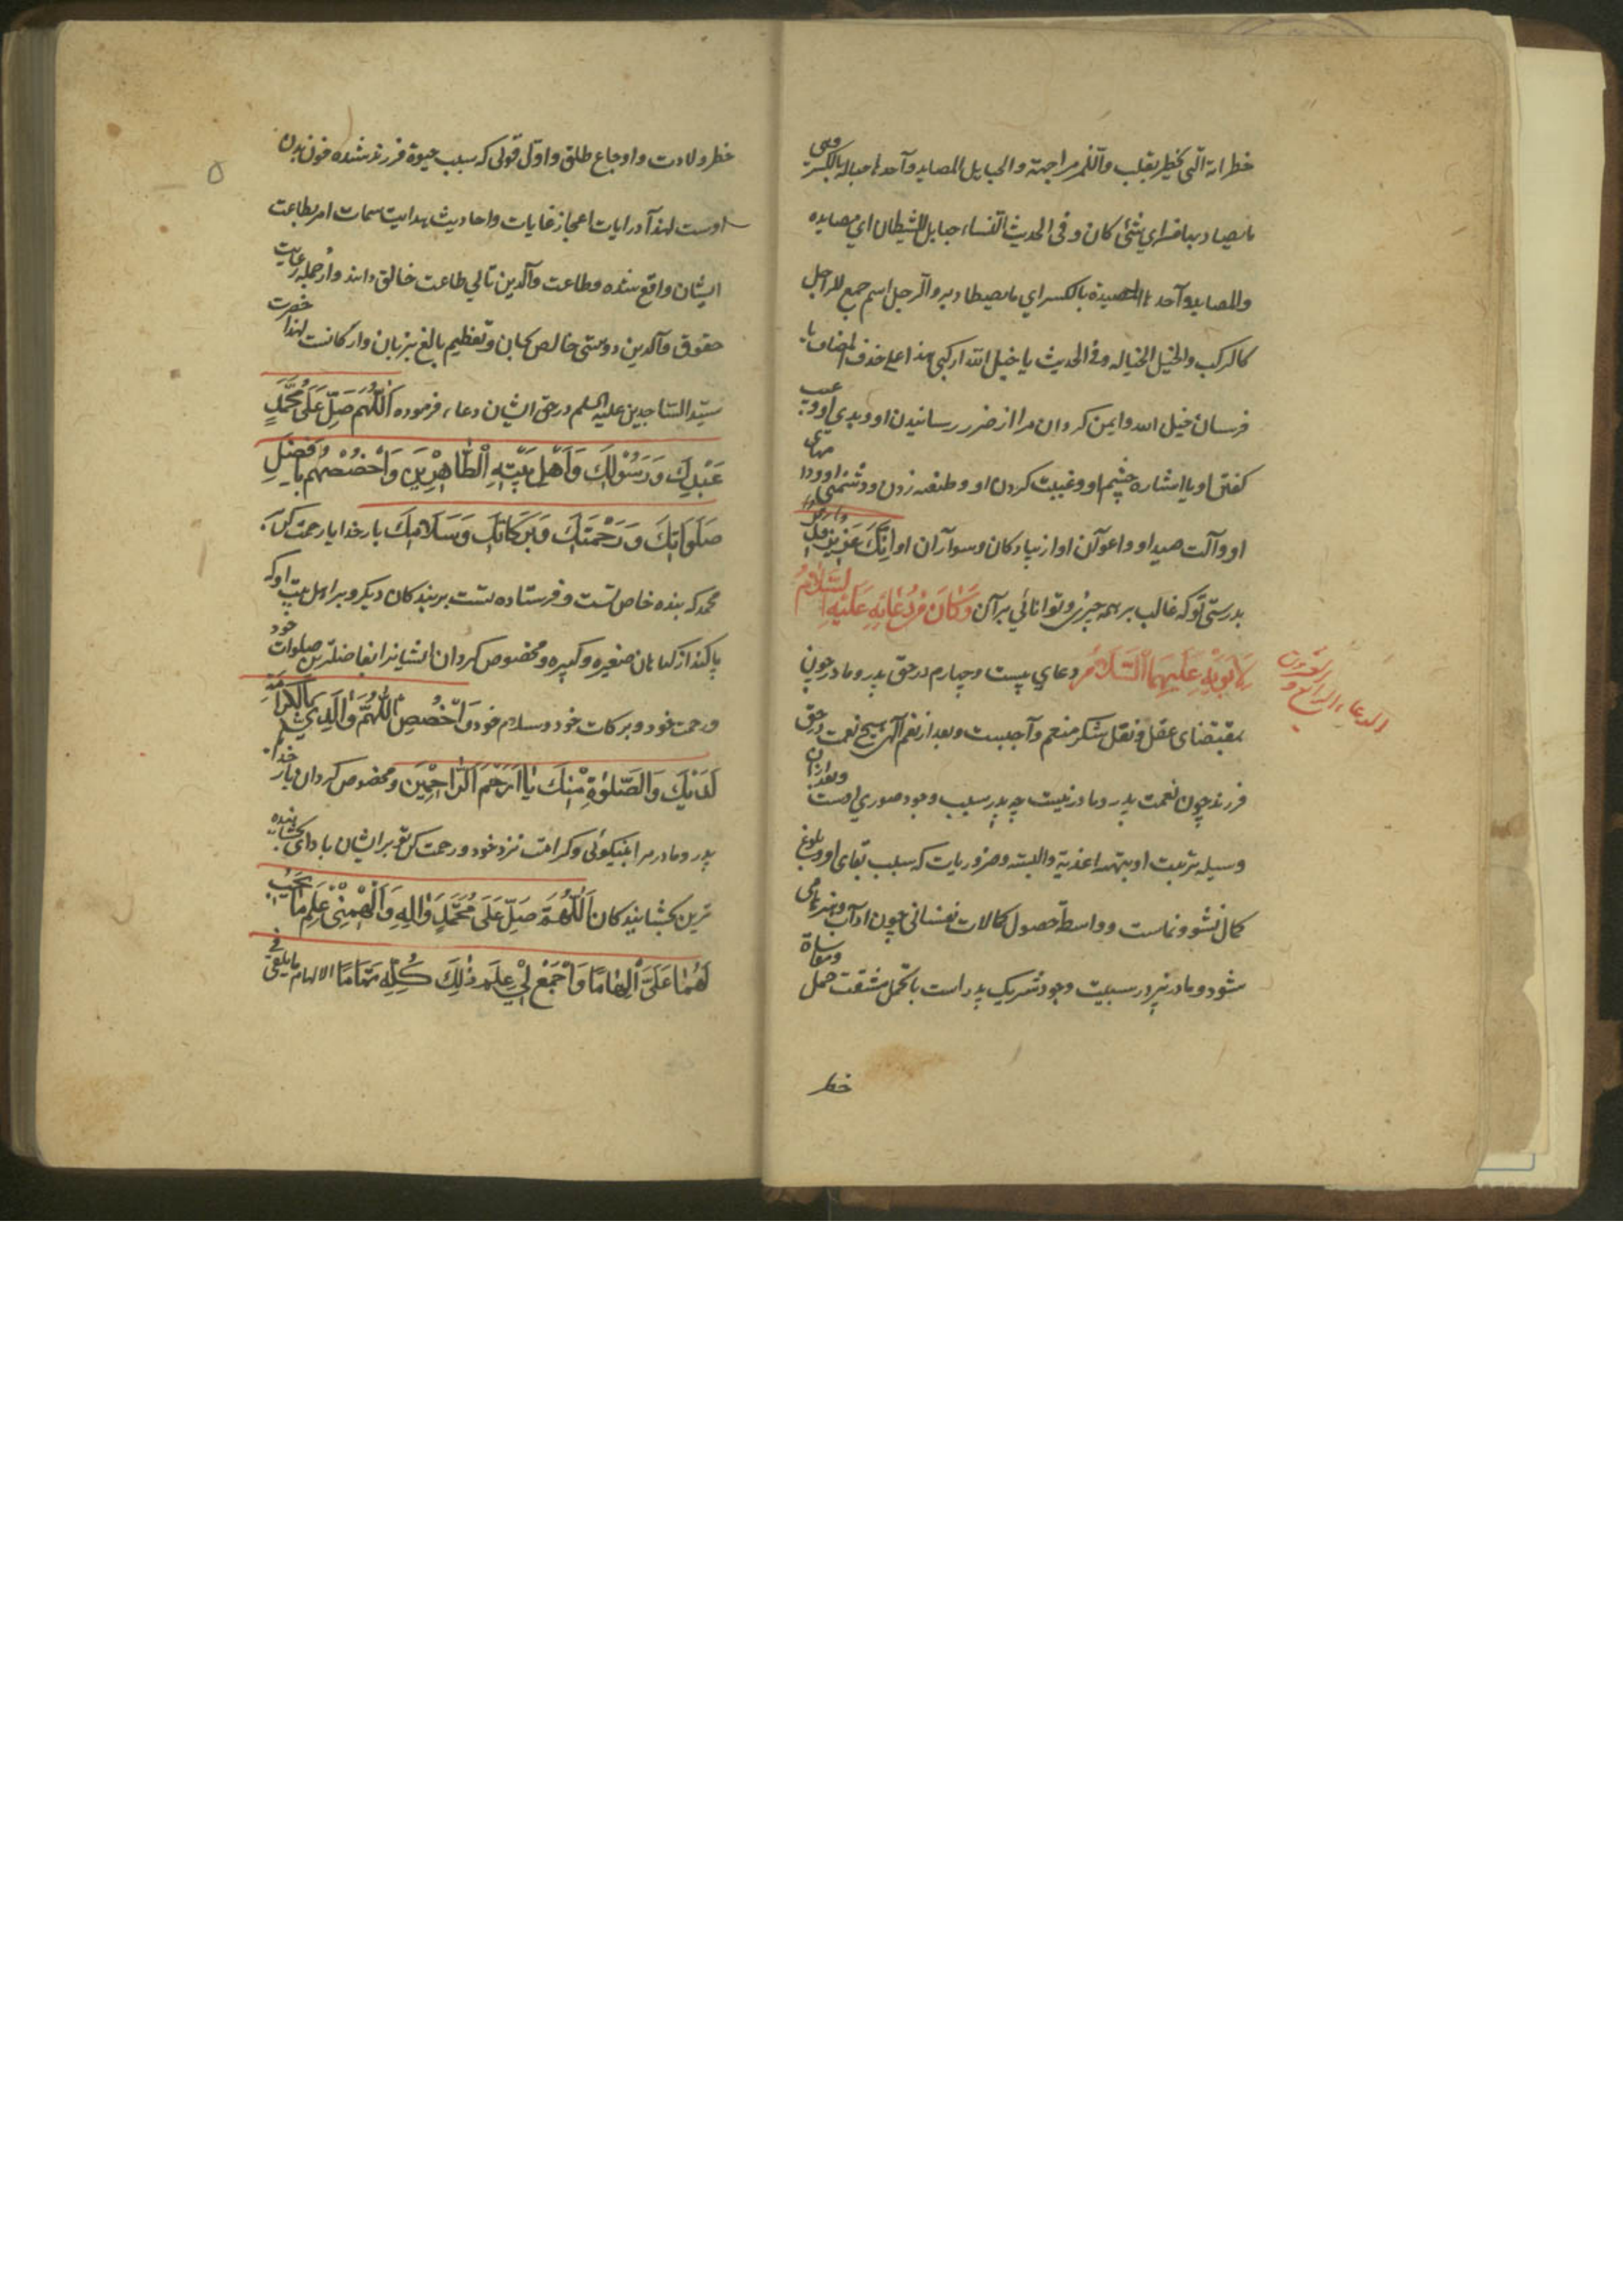 خطرانه التی یخطر بقلب واللمز مواجهة والحبایل المصاید واحدها حباله بالکسر وهی
مایصاد بها من ای شئ کان و فی الحدیث النساء حبایل الشیطان ای مصایده
والمصاید واحدها المصیدة بالکسر ای مایصطاد به والرجل اسم جمع للراجل
کالرکب والخیل الخیاله و فی الحدیث یا خیل الله ارکبی هذا علی حذف المضاف یا
فرسان خیل الله وایمن کردان مرا از ضرر رسانیدن او و بدی او و عیب
کفتن او با اشاره چشم او و غیبت کردن او و طعنه زدن و دشمنی او و دامهای
او و آلت صید او و اعوان او از پیادکان و سواران او اِنَّکَ عَزِیزٌ
بدرستی تو که غالب بر همه چیزی و توانائی برآن وَکَانَ مِنْ دُعَائِهِ عَلَیْهِ السَّلَامُ
لِاَبَوَیْهِ عَلَیْهِمَا السَّلَامُ دعای بیست و چهارم در حق پدر و مادر چون
الدعاء الرابع و العشرون
بمقتضای عقل و نقل شکر منعم واجبست و بعد از نعم الهی هیچ نعمت در حق
فرزند چون نعمت پدر و مادر نیست چه پدر سبب وجود صوری اوست و بعد از ان
وسیله تربیت او بتهیه اغذیه والبسه و ضروریات که سبب بقای او و بلوغ
کمال نشو و نماست و واسطه حصول کمالات نفسانی چون اداب و هنر
میشود و مادر نیز در سببیت وجود شریک پدر است با تحمل مشقت حمل
خطر
خطر ولادت و اوجاع طلق و اول قوتی که سبب حیوة فرزند شده خون بدن
اوست لهذا در ایات اعجاز غایات و احادیث هدایت سمات امر بطاعت
ایشان واقع شده و طاعت والدین تالی طاعت خالق دانند و از جمله رعایت
حقوق والدین دوستی خالص بجان و تعظیم بالغ بزبان و ارکانست لهذا حضرت
سید الساجدین علیه السلم در حق ایشان دعا فرموده اَللّٰهُمَّ صَلِّ عَلَی مُحَمَّدٍ
عَبْدِکَ وَرَسُوْلِکَ وَاَهْلِ بَیْتِهِ الْطَّاهِرِیْنَ وَاخْصُصْهُم بِاَفْضَلِ
صَلَوَاتِکَ وَرَحْمَتِکَ وَبَرَکَاتِکَ وَسَلَامِکَ بار خدایا رحمت کن بر
محمد که بنده خاص تست و فرستاده تست بر بندکان دیکر و بر اهل بیت او که
پاکند از کناهان صغیره و کبیره و مخصوص کردان ایشانرا بفاضلترین صلوات خود
و رحمت خود و برکات خود و سلام خود وَاخْصُصِ اللّٰهُمَّ وَالِدَیَّ بِالْکَرَامَةِ
لَدَیْکَ وَالصَّلٰوةِ مِنْکَ یٰا اَرْحَمَ الرَّاحِمِیْنَ و مخصوص کردان بار خدایا
پدر و مادر مرا بنیکوئی و کرامت نزد خود و رحمت کن تو بر ایشان باد ای بخشاینده
ترین بخشایندکان اَللّٰهُمَّ صَلِّ عَلَی مُحَمَّدٍ وَاٰلِهِ وَاَلْهِمْنِیْ عِلْمَ مَا یَجِبُ
لَهُمٰا عَلَیَّ اِلْهٰامًا وَاجْمَعْ لِیْ عِلْمَ ذٰلِکَ کُلِّهِ تَمَامًا الالهام مایلقی فی